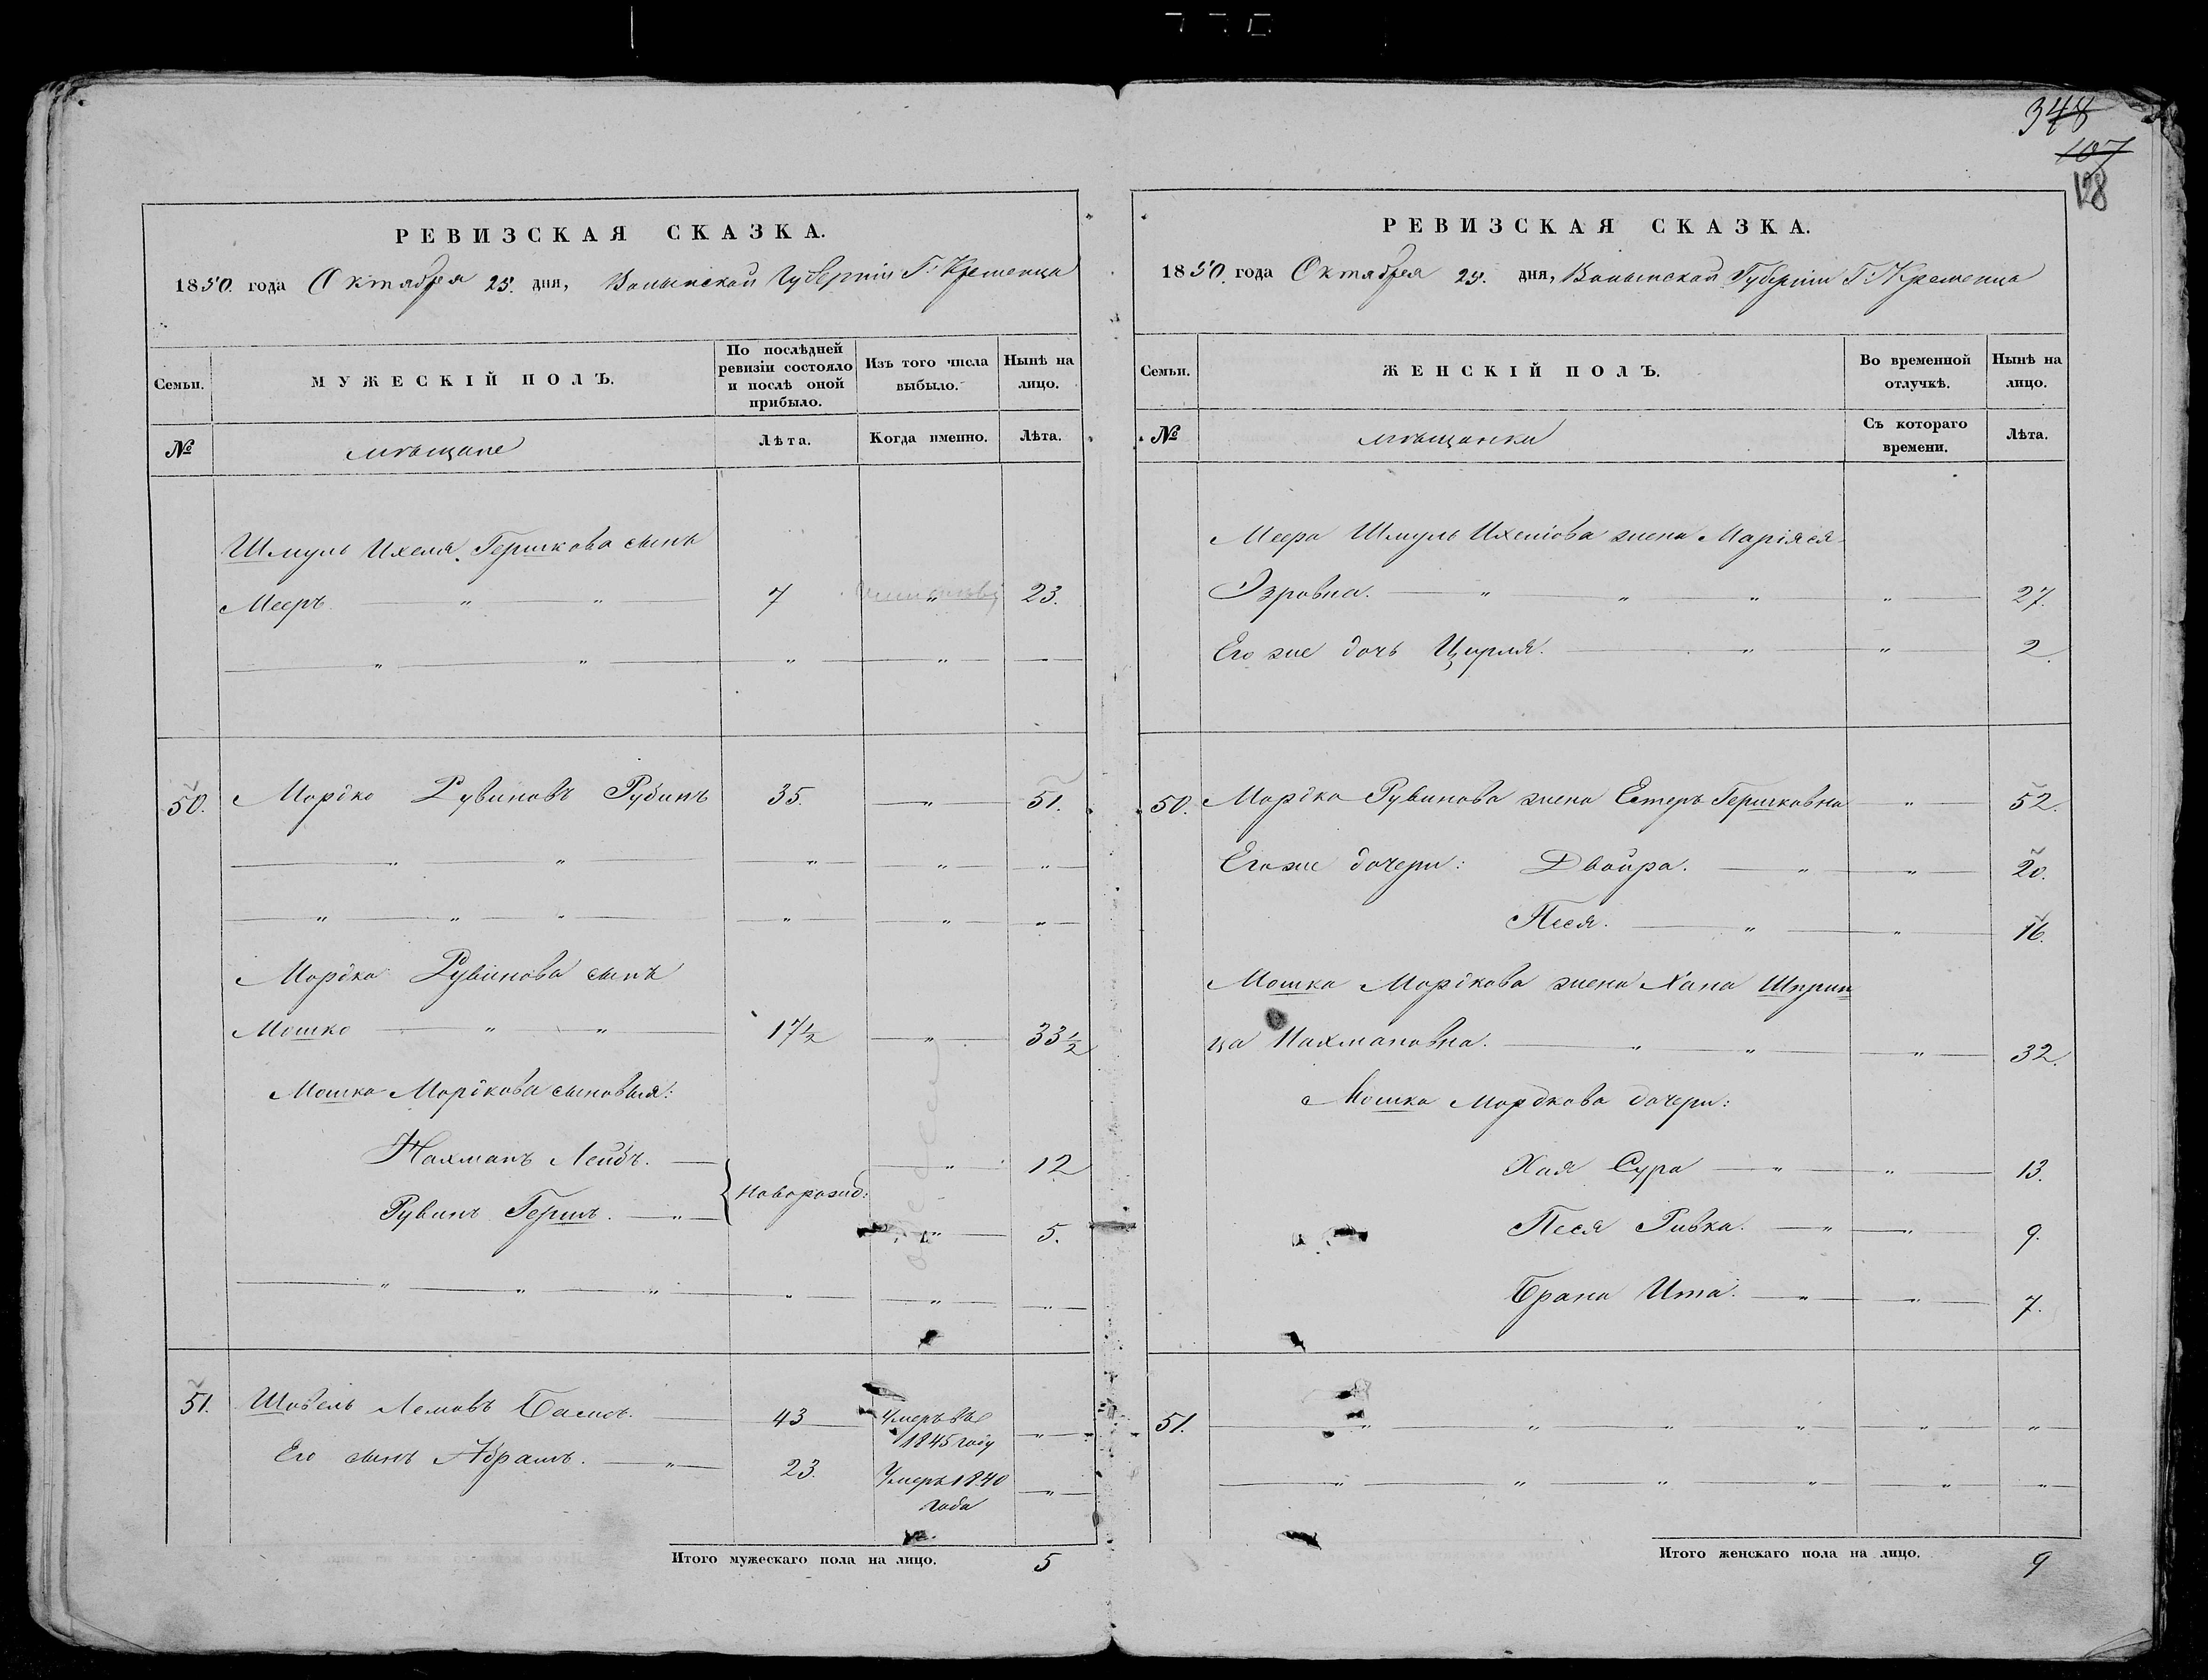 348
107
128
РЕВИЗСКАЯ СКАЗКА.
1850. года Октября 25. дня, Волынской Губерніи Г: Кременца
Семьи.
МУЖЕСКІЙ ПОЛЪ.
По послѣдней ревизіи состояло и послѣ оной прибыло.
Изъ того числа выбыло.
Нынѣ на лицо.
№
мѣщане
Лѣта.
Когда именно.
Лѣта.
Шмуль Ихеля Гершкова сынъ
Мееръ — „ — „ — 7 „ 23.
— „ — „ — „ — „ —
50. Мордко Рувиновъ Рубинъ 35. — „ — 51.
— „ — „ — „ — „ — „ —
— „ — „ — „ — „ — „ — „ —
Мордка Рувинова сынъ
Мошко — „ — „ — 17½ — „ — 33½
Мошка Мордкова сыновья:
Нахманъ Лейбъ. — „ — 12
новорожд:
Рувинъ Гершъ. — „ — „ — 5.
— „ — „ — „ — „ — „ — „ —
51. Шовель Лемовъ 43 — Умеръ въ 1845 году — „ —
Его сынъ Абрамъ. — „ — 23. Умеръ 1840 года — „ —
Итого мужескаго пола на лицо. 5
РЕВИЗСКАЯ СКАЗКА.
1850. года Октября 25. дня, Волынской Губерніи Г: Кременца
Семьи.
ЖЕНСКІЙ ПОЛЪ.
Во временной отлучкѣ.
Нынѣ на лицо.
№
мѣщанки
Съ котораго времени.
Лѣта.
Меера Шмуль Ихелюва жена Маріяся
Эзровна. — „ — „ — „ — „ — 27.
Его же дочь Цирля. — „ — „ — 2.
50. Мордка Рувинова жена Естеръ Гершковна „ — 52.
Его же дочери: Двойра. — „ — „ — 20.
Песя. — „ — „ — 16.
Мошка Мордкова жена Хана Шприн
ца Нахмановна. — „ — „ — „ — 32.
Мошка Мордкова дочери:
Хая Сура — „ — „ — 13.
Песя Ривка. — „ — „ — 9.
Брана Ита. — „ — „ — 7.
51. — „ — „ — „ — „ — „ — „ —
— „ — „ — „ — „ — „ — „ —
Итого женскаго пола на лицо. 9